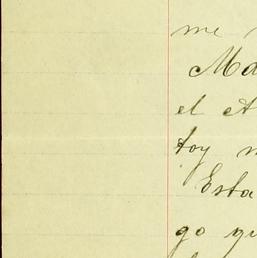 me
Ma
el A
toy
Esta
go qu